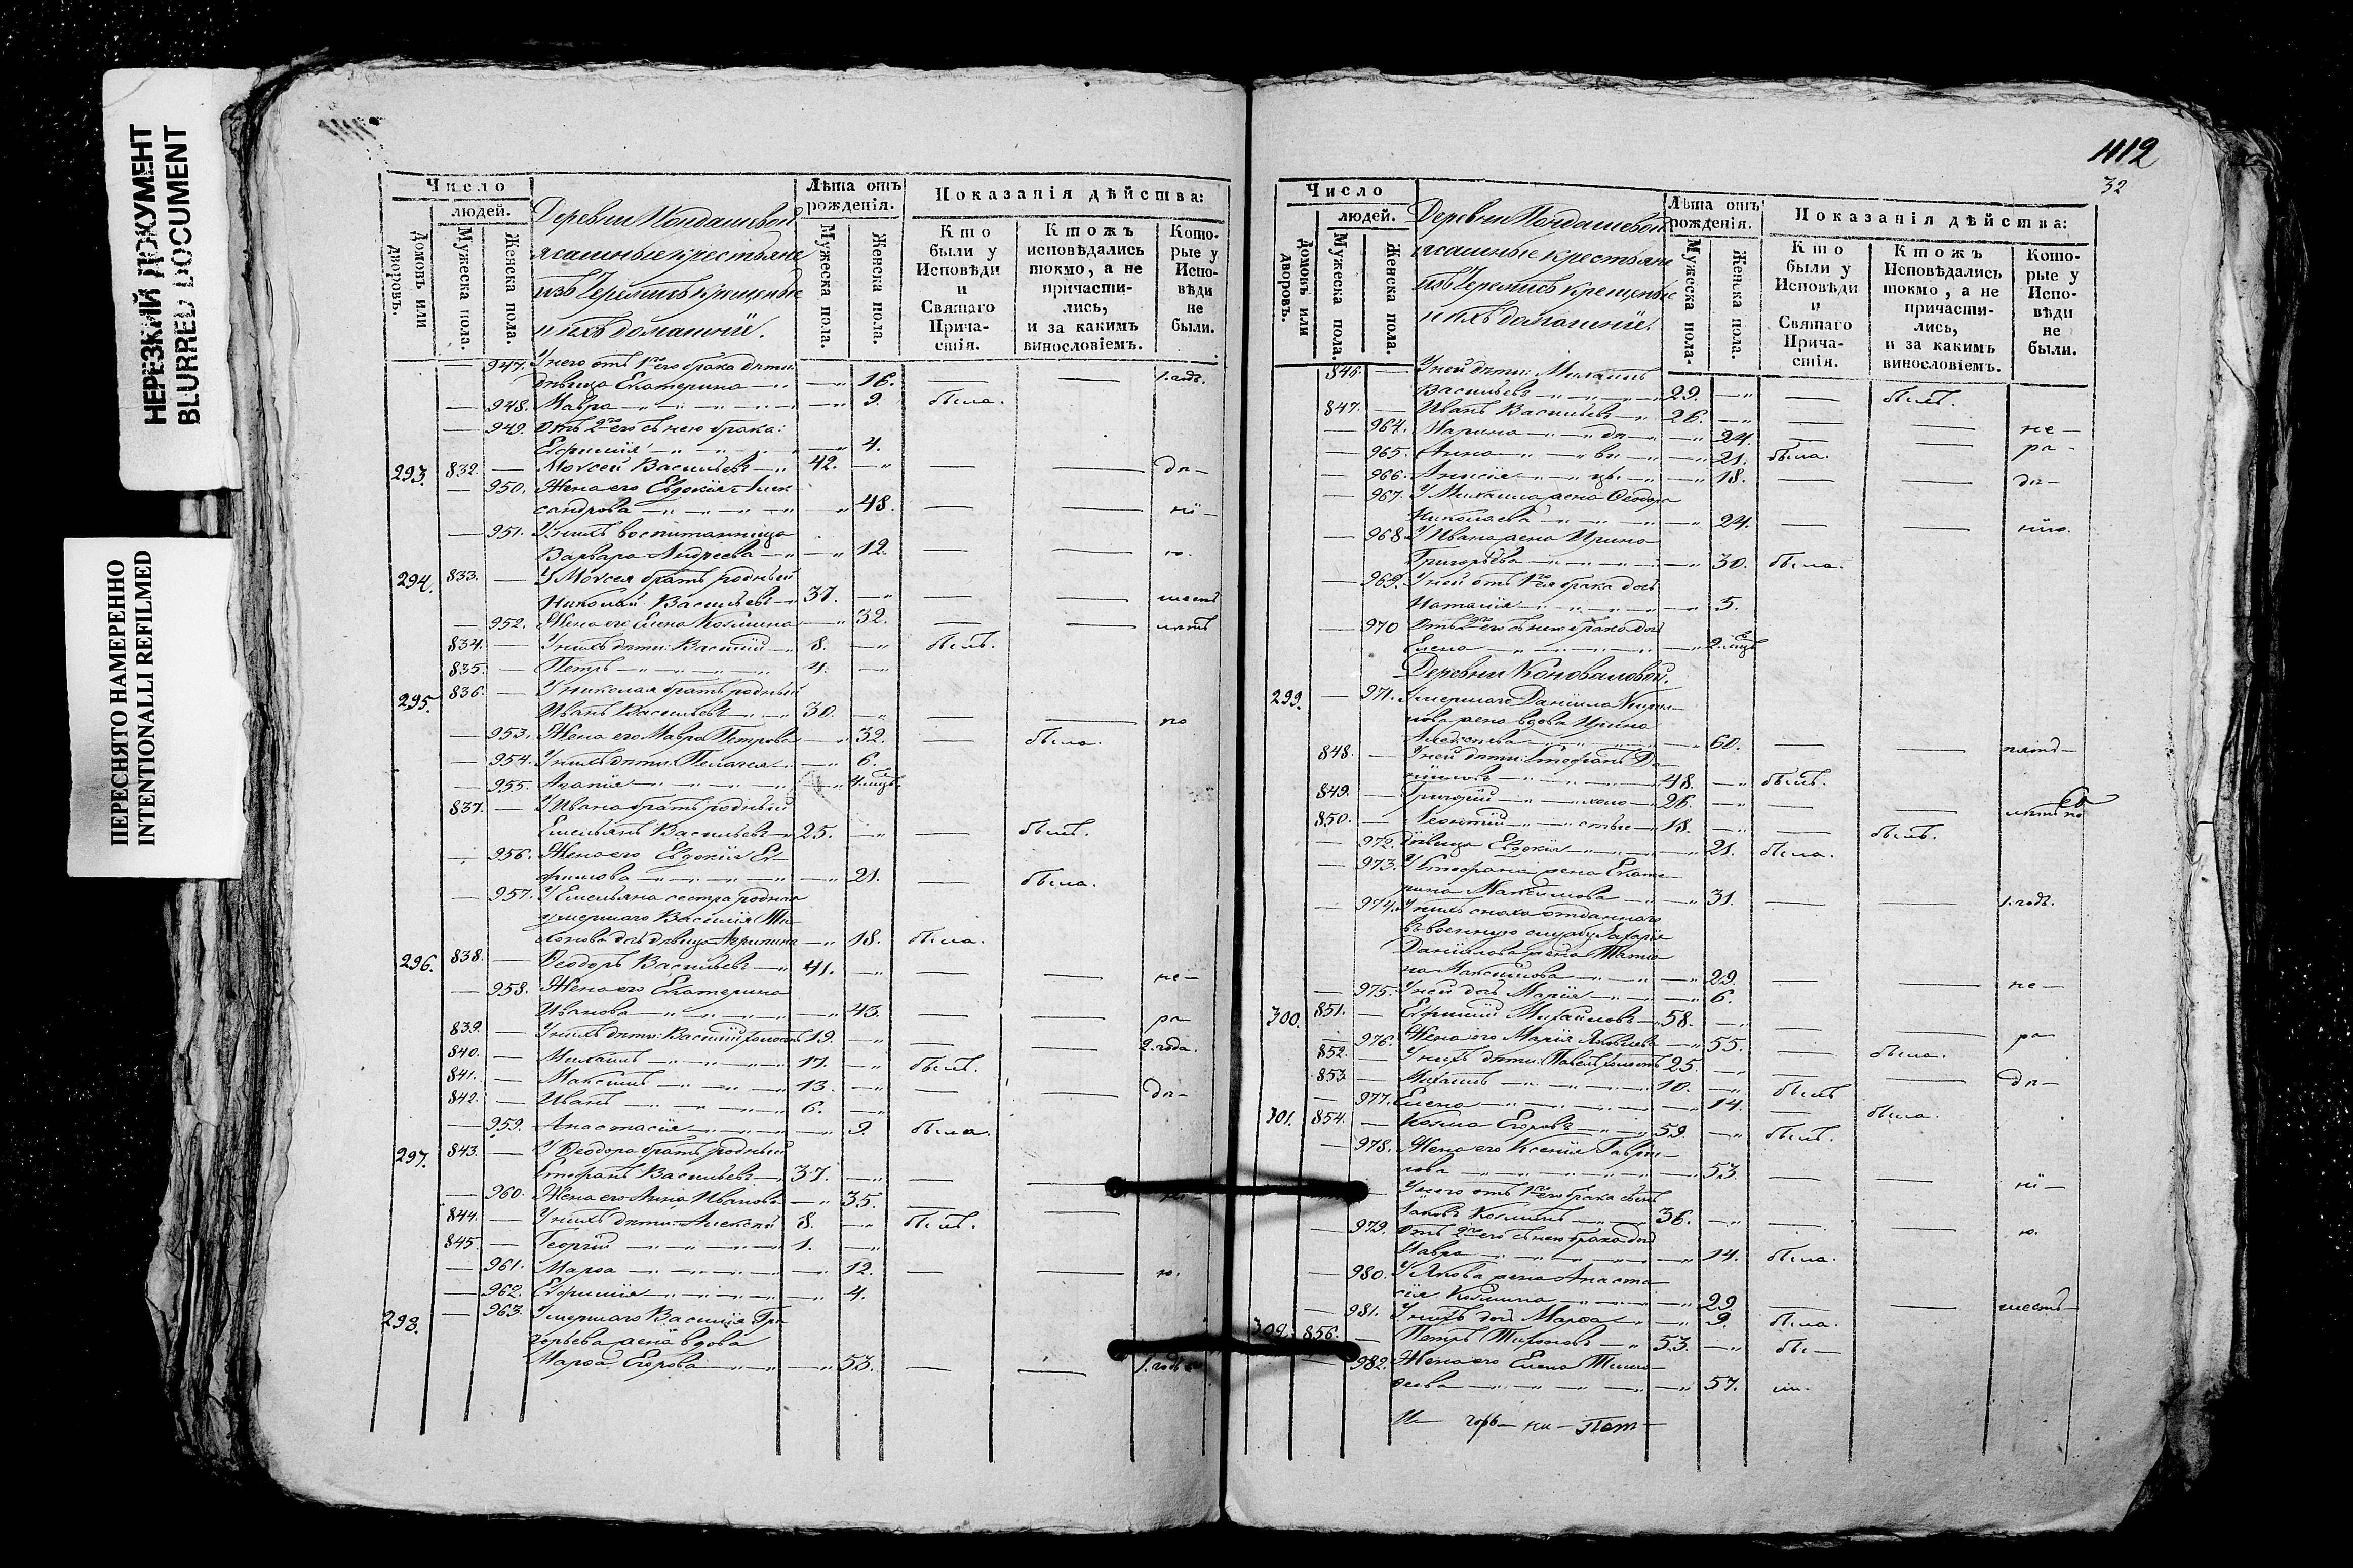 НЕРЕЗКИЙ ДОКУМЕНТ
BLURRED DOCUMENT
ПЕРЕСНЯТО НАМЕРЕННО
INTENTIONALLI REFILMED
Число
людей.
Домовъ или дворовъ.
Мужеска пола.
Женска пола.
Деревни
ясашные крестьяне
изъ Черемисъ крещеные
и ихъ домашніи.
Лѣта отъ рожденія.
Мужеска пола.
Женска пола.
Показанія дѣйства:
Кто были у Исповѣди и Святаго Причастія.
Ктожъ исповѣдались токмо, а не причастились, и за какимъ винословіемъ.
Которые у Исповѣди не были.
947. У него отъ 1го его брака дѣти:
дѣвица Екатерина 16. 1. годъ.
948. Мавра 9. была.
949. Отъ 2го его съ нею брака:
Ефимія 4.
293. 832. Моѵсей Васильевъ 42. да-
950. Жена его Евдокія Алек-
сандрова 48. ні-
951. У нихъ воспитанница
Варвара Андреева 12. ю.
294. 833. У Моѵсея братъ родный
Николай Васильевъ 37. шесть
952. Жена его Елена Козмина 32. лѣтъ
834. У нихъ дѣти: Василій 8. былъ.
835. Петръ 4.
295. 836. У Николая братъ родный
Иванъ Васильевъ 30. по
953. Жена его Мавра Петрова 32. была.
954. У нихъ дѣти: Пелагея 6.
955. Агапія 4. мцъ.
837. У Ивана братъ родный
Емельянъ Васильевъ 25. былъ.
956. Жена его Евдокія Еф-
имова 21. была.
957. У Емельяна сестра родная
умершаго Василія Ти-
хонова дочь дѣвица Агрипина 18. была.
296. 838. Ѳеодоръ Васильевъ 41. не-
958. Жена его Екатерина
Иванова 43. ра-
839. У нихъ дѣти: Василій холостъ 19. 2. года.
840. Михаилъ 17. былъ.
841. Максимъ 13. да-
842. Иванъ 6.
959. Анастасія 9. была.
297. 843. У Ѳеодора братъ родный
Стефанъ Васильевъ 37.
960. Жена его Анна Иванова 35.
844. У нихъ дѣти: Алексѣй 8. былъ.
845. Георгій 1.
961. Марѳа 12. ю.
962. Ефимія 4.
298. 963. Умершаго Василія Гри-
горьева жена вдова
Марѳа Егорова 53. 1. годъ
412
32
Число
людей.
Домовъ или дворовъ.
Мужеска пола.
Женска пола.
Деревни
ясашные крестьяне
изъ Черемисъ крещеные
и ихъ домашніи.
Лѣта отъ рожденія.
Мужеска пола.
Женска пола.
Показанія дѣйства:
Кто были у Исповѣди и Святаго Причастія.
Ктожъ Исповѣдались токмо, а не причастились, и за какимъ винословіемъ.
Которые у Исповѣди не были.
846. У ней дѣти: Михаилъ
Васильевъ 29. былъ.
847. Иванъ Васильевъ 26. не-
964. Марина дѣ 24. ра-
965. Анна ви 21. была.
966. Анисія цы 18. да-
967. У Михаила жена Ѳеодора
Николаева 24. нію.
968. У Ивана жена Ирина
Григорьева 30. была.
969. У ней отъ 1го ея брака дочь
Наталія 5.
970 Отъ 2го его съ нею брака дочь
Елена 2. мцъ
Деревни Коноваловой.
299. 971. Умершаго Даніила Кирил-
лова жена вдова Ирина
Алексѣева 60. пять-
848. У ней дѣти: Стефанъ Да-
ниловъ 48. былъ.
849. Григорій холо 26. лѣтъ по
850. Леонтій стые 18. былъ.
972. Дѣвица Евдокія 21. была.
973. У Стефана жена Екате-
рина Максимова 31. 1. годъ.
974. У нихъ сноха отданнаго
въ военную службу Захарія
Данилова жена Татіа-
на Максимова 29. не-
975. У ней дочь Марія 6.
300. 851. Ефимій Михайловъ 58. ра-
976. Жена его Марія Яковлева 55. была.
852. У нихъ дѣти: Павелъ холостъ 25. да-
853. Михаилъ 10. былъ
977. Елена 14. была.
301. 854. Козма Егоровъ 59. былъ.
978. Жена его Ксенія Гаври-
лова 53. ні-
У него отъ 1го его брака сынъ
Іаковъ Козминъ 36. ю.
979. Отъ 2го его съ нею брака дочь
Мавра 14. была.
980. У Якова жена Анаста-
сія Козмина 29. шесть-
981. У нихъ дочь Марѳа 9. была.
302. 856. Петръ Тихоновъ 53. бы-
982. Жена его Елена Тимо-
ѳеева 57. ли.